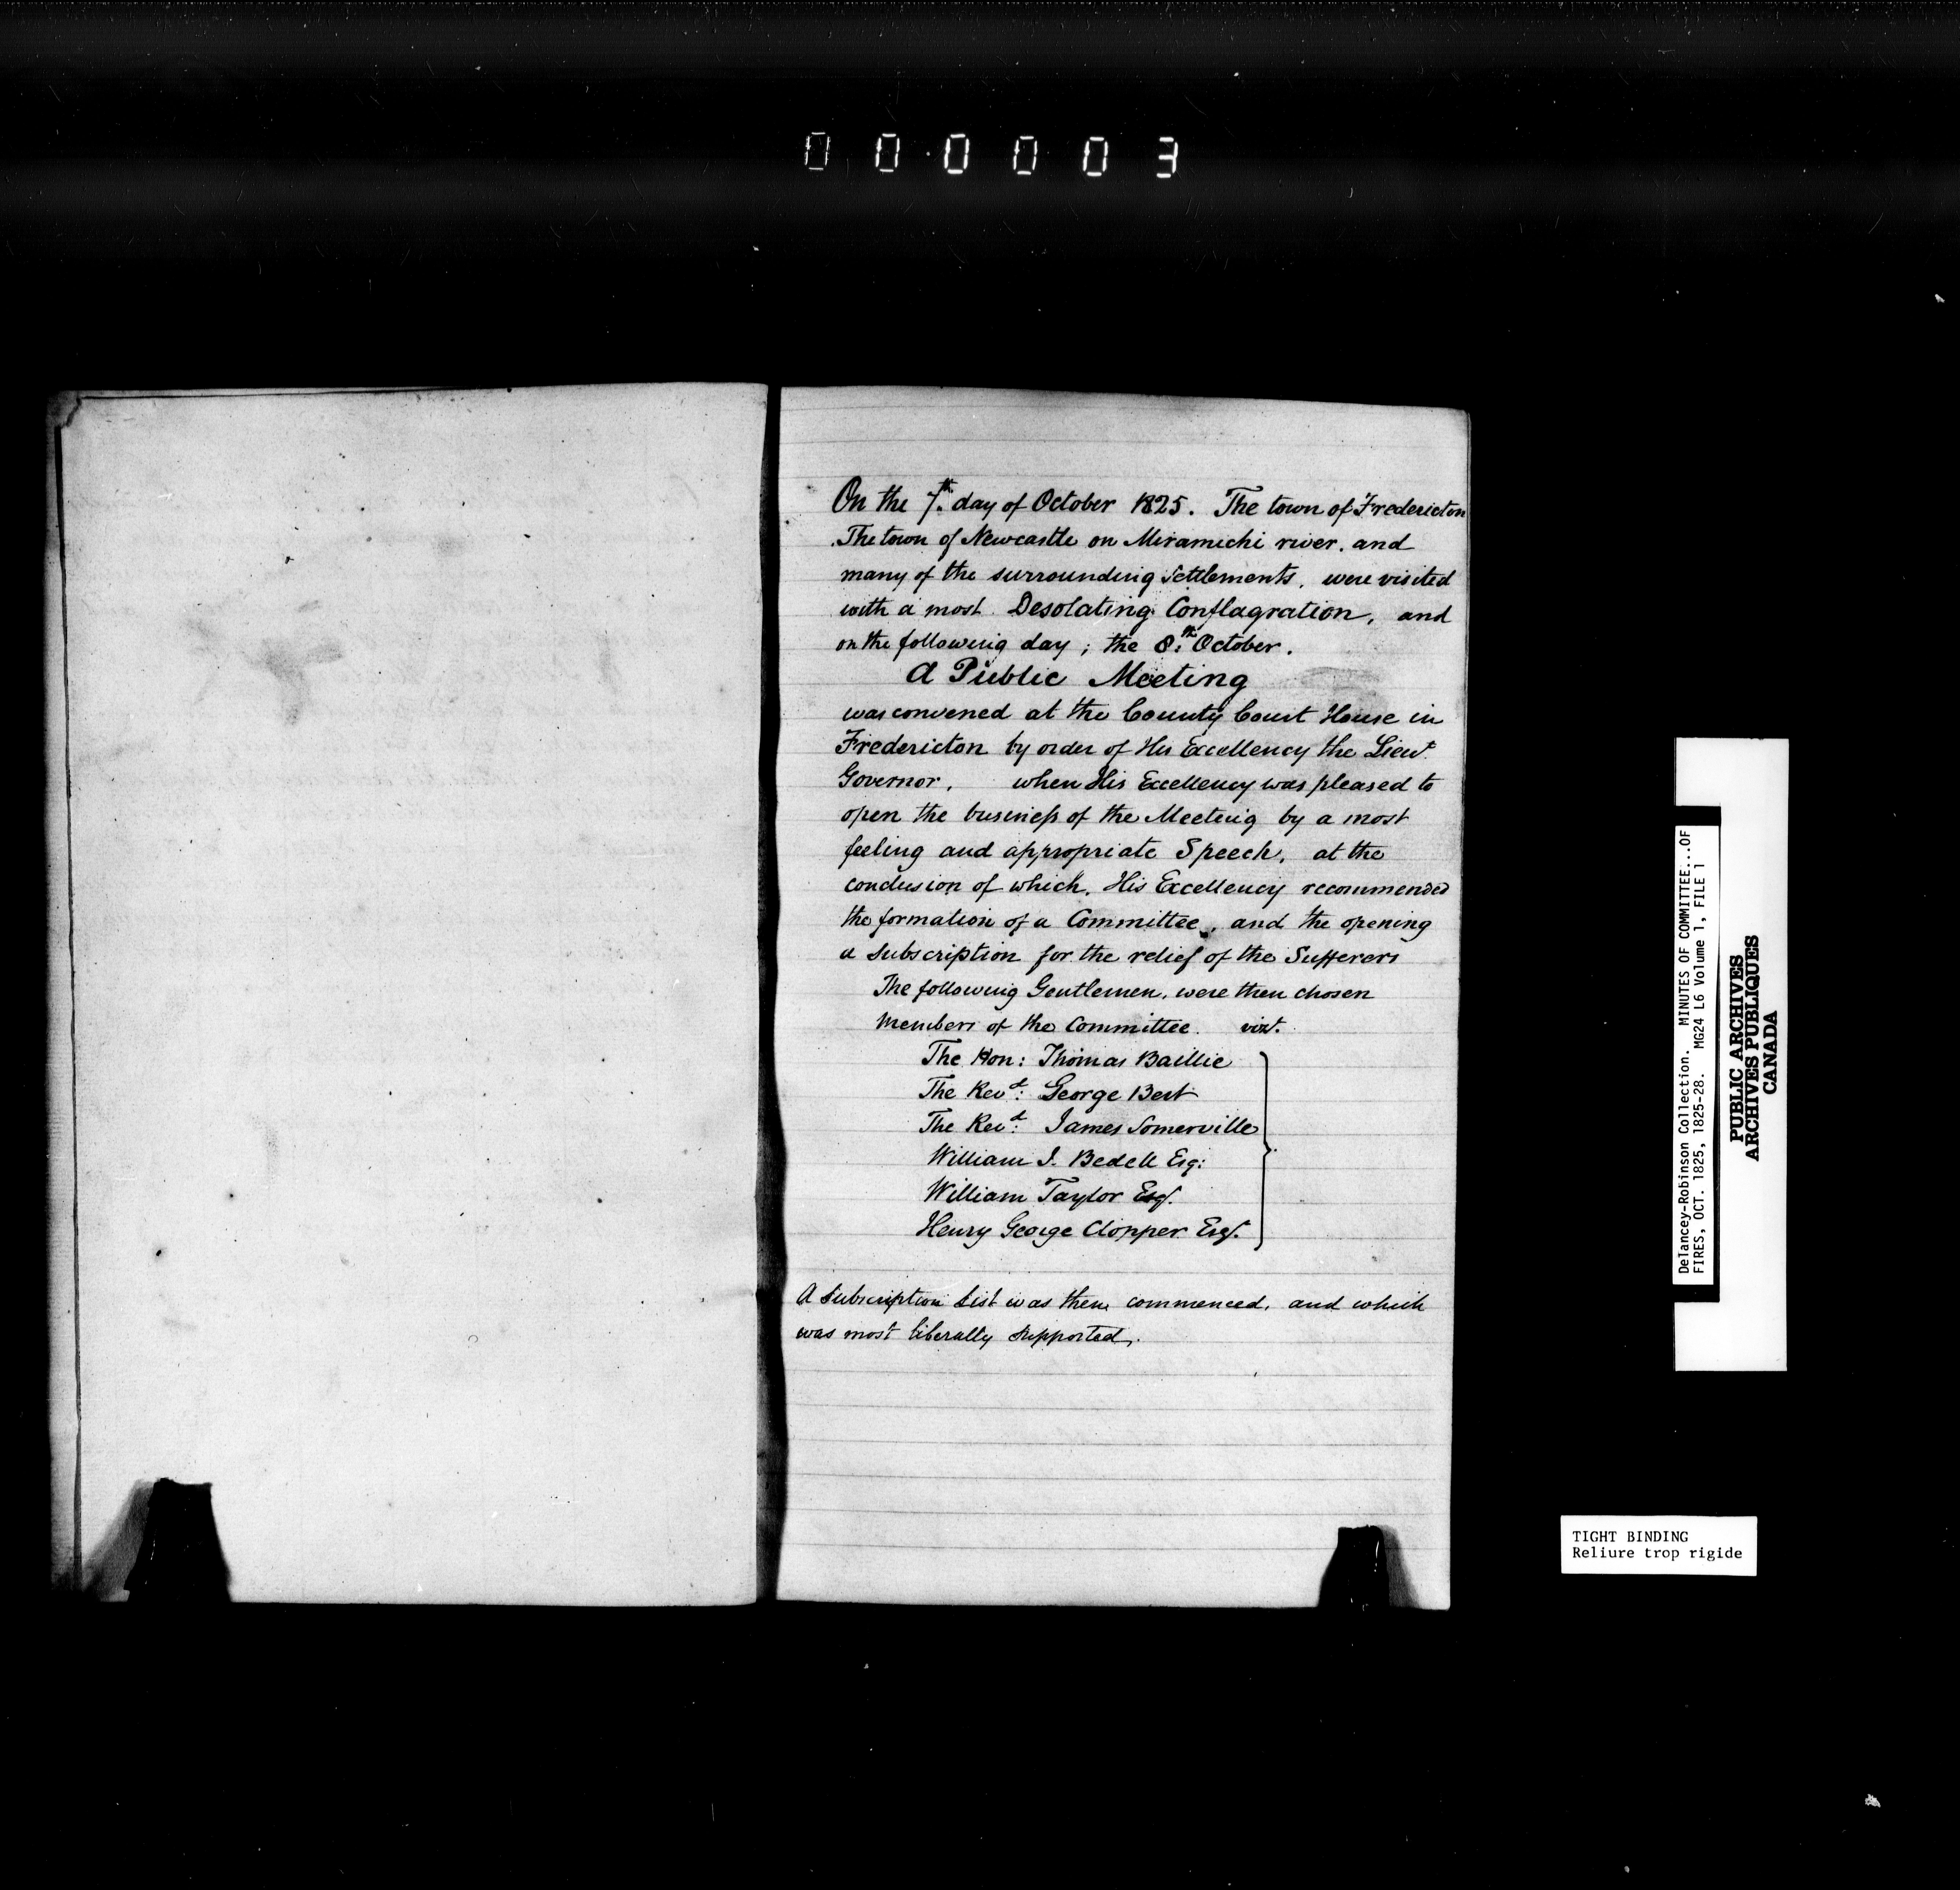 000003
On the 7th. day of October 1825. The town of Fredericton
The town of Newcastle on Miramichi river, and
many of the surrounding Settlements, were visited
with a most Desolating Conflagration, and
on the following day; the 8th. October.
A Public Meeting
was convened at the County Court House in
Fredericton by order of His Excellency the Lieut.
Governor, when His Excellency was pleased to
open the business of the Meeting by a most
feeling and appropriate Speech, at the
conclusion of which, His Excellency recommended
the formation of a Committee, and the opening
a subscription for the relief of the Sufferers
The following Gentlemen, were then chosen
members of the Committee. vizt.
The Hon: Thomas Baillie
The Revd: George Best
The Revd: James Somerville
William J. Bedell Esq:
William Taylor Esqr.
Henry George Clopper Esqr.
A Subscription List was then commenced, and which
was most liberally supported.
Delancey-Robinson Collection. MINUTES OF COMMITTEE...OF
FIRES, OCT. 1825, 1825-28. MG24 L6 Volume 1, FILE 1
PUBLIC ARCHIVES
ARCHIVES PUBLIQUES
CANADA
TIGHT BINDING
Reliure trop rigide